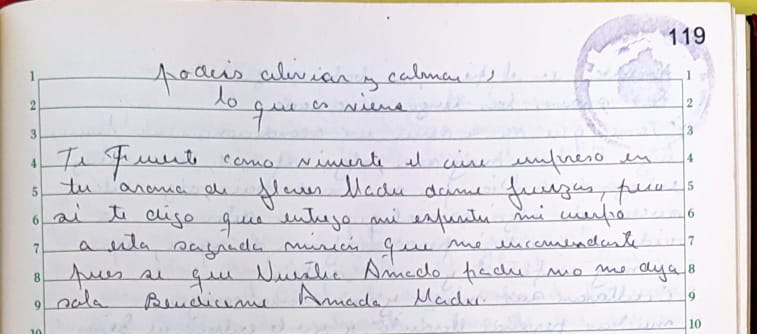 119
1 podeis aliviar y calmar, 1
2 lo que os viene 2
3 3
4 Te Fuerte como viniste el aire impreso en 4
5 tu aroma de flores Madre dame fuerzas, pero 5
6 si te digo que entrego mi espiritu mi cuerpo 6
7 a esta sagrada mision que me encomendaste 7
8 pues se que Nuestro Amado padre no me deja 8
9 sola Bendiceme Amada Madre. 9
10 10